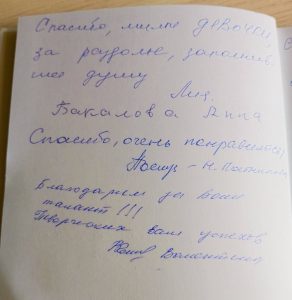 Спасибо, милые девочки,
за раздолье, заполнив
шее душу
Лиц.
Бакалова Анна
Спасибо, очень понравилось!
Благодарим за Ваш
талант!!!
Творческих вам успехов